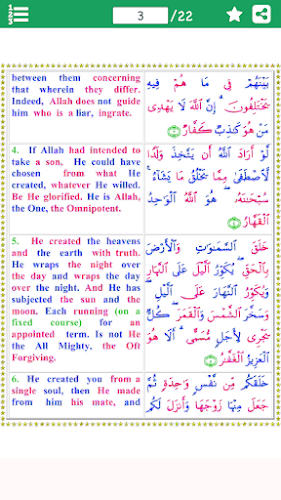 3
/22
between them concerning
that wherein they differ.
Indeed, Allah does not guide
him who is a liar, ingrate.
بَيْنَهُمْ فِى مَا هُمْ فِيهِ
يَخْتَلِفُونَ ۗ إِنَّ ٱللَّهَ لَا يَهْدِى
مَنْ هُوَ كَـٰذِبٌ كَفَّارٌ ﴿٣﴾
4. If Allah had intended to
take a son, He could have
chosen from what He
created, whatever He willed.
Be He glorified. He is Allah,
the One, the Omnipotent.
لَّوْ أَرَادَ ٱللَّهُ أَن يَتَّخِذَ وَلَدًا
لَّٱصْطَفَىٰ مِمَّا يَخْلُقُ مَا يَشَآءُ ۚ
سُبْحَـٰنَهُۥ ۖ هُوَ ٱللَّهُ ٱلْوَٰحِدُ
ٱلْقَهَّارُ ﴿٤﴾
5. He created the heavens
and the earth with truth.
He wraps the night over
the day and wraps the day
over the night. And He has
subjected the sun and the
moon. Each running (on a
fixed course) for an
appointed term. Is not He
the All Mighty, the Oft
Forgiving.
خَلَقَ ٱلسَّمَـٰوَٰتِ وَٱلْأَرْضَ
بِٱلْحَقِّ ۖ يُكَوِّرُ ٱلَّيْلَ عَلَى ٱلنَّهَارِ
وَيُكَوِّرُ ٱلنَّهَارَ عَلَى ٱلَّيْلِ ۖ
وَسَخَّرَ ٱلشَّمْسَ وَٱلْقَمَرَ ۖ كُلٌّ
يَجْرِى لِأَجَلٍ مُّسَمًّى ۗ أَلَا هُوَ
ٱلْعَزِيزُ ٱلْغَفَّـٰرُ ﴿٥﴾
6. He created you from a
single soul, then He made
from him his mate, and
خَلَقَكُم مِّن نَّفْسٍ وَٰحِدَةٍ ثُمَّ
جَعَلَ مِنْهَا زَوْجَهَا وَأَنزَلَ لَكُم